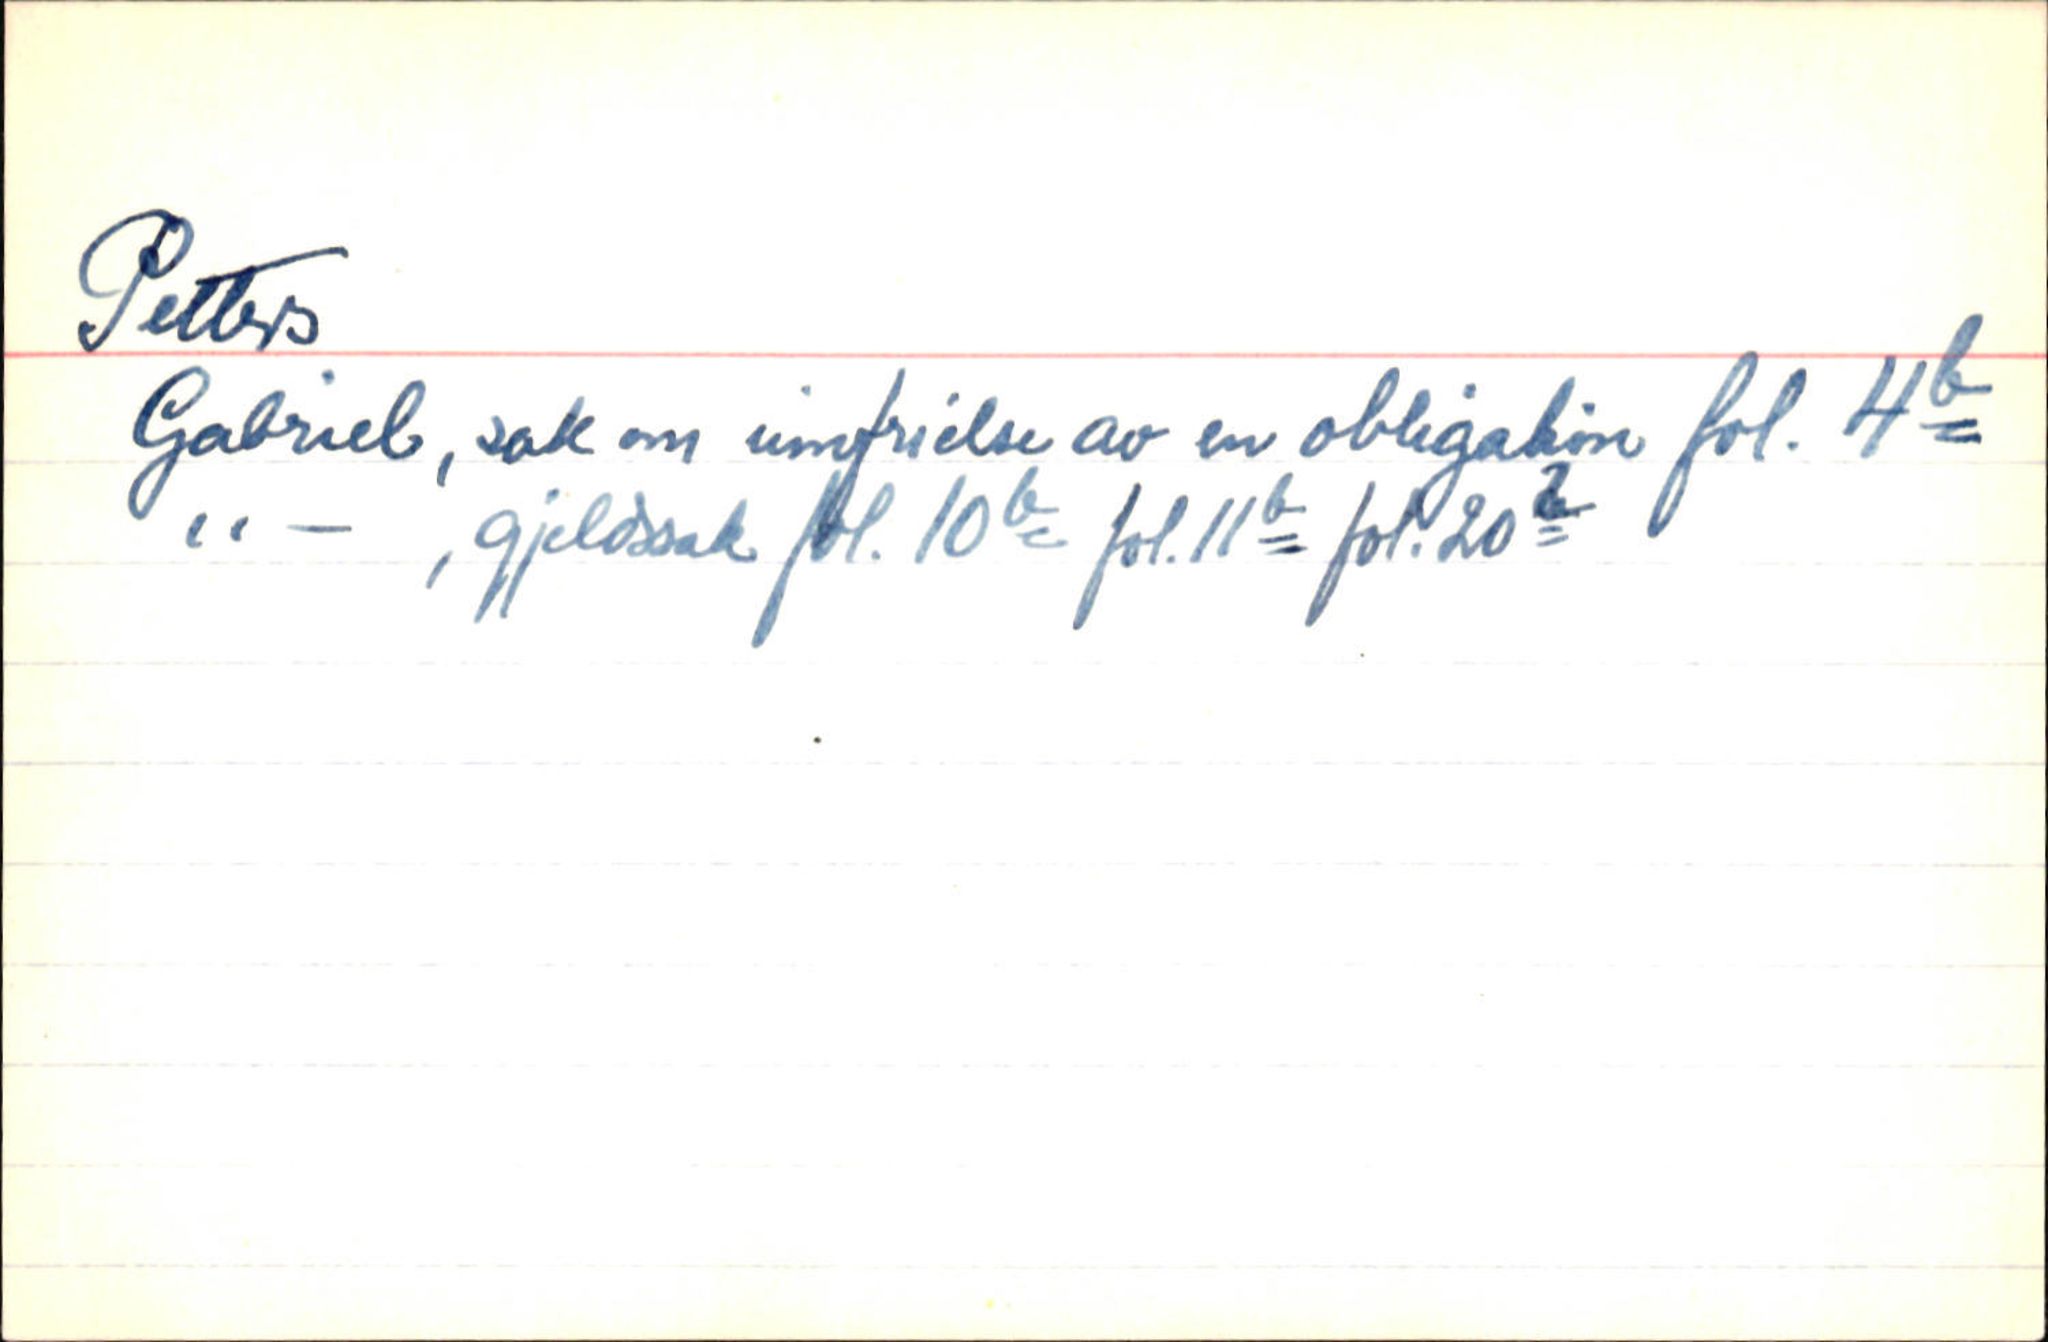 Petters
Gabriel, sak om innfrielse av en obligation fol. 4b
" - , gjeldssak fol. 10b fol. 11b fol. 20b